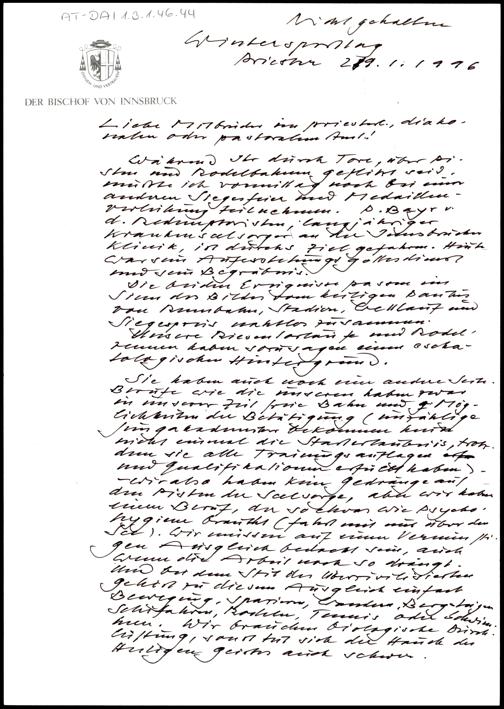 AT-DAI 1.3.1.46.44
Nicht gehalten
Wintersporttag
Priester 29.1.1996
DER BISCHOF VON INNSBRUCK
Liebe Mitbrüder im priesterl., diako-
nalen oder pastoralen Amt!
Während Ihr durch Tore, über Pi-
sten und Rodelbahnen geflitzt seid,
mußte ich vormittag noch bei einer
anderen Siegesfeier und Medaillen-
verleihung teilnehmen. P. Bayr v.
d. Redemptoristen, langjähriger
Krankenseelsorger an der Innsbrucker
Klinik, ist durchs Ziel gefahren. Heute
war sein Auferstehungsgottesdienst
und sein Begräbnis.
Die beiden Ereignisse passen im
Sinn des Bildes vom heiligen Paulus
von Rennbahn, Stadion, Wettlauf und
Siegespreis nahtlos zusammen.
Unsere Riesentorläufe und Rodel-
rennen haben sozusagen einen escha-
tologischen Hintergrund.
Sie haben auch noch eine andere Seite.
Berufe wie die unseren haben zwar
in unserer Zeit freie Bahn und Mög-
lichkeiten der Betätigung (unzählige
Jungakademiker bekommen heute
nicht einmal die Starterlaubnis, trotz-
dem sie alle Trainingsauflagen
und Qualifikationen erfüllt haben) -
- wir also haben kein Gedränge auf
den Pisten der Seelsorge, aber wir haben
einen Beruf, der so etwas wie Psycho-
hygiene braucht (fahrt mit uns über den
See). Wir müssen auf einen vernünfti-
gen Ausgleich bedacht sein, auch
wenn die Arbeit noch so drängt.
Und bei dem Stil des Überzivilisierten
gehört zu diesem Ausgleich einfach
Bewegung, Spazieren, Wandern, Bergsteigen,
Schifahren, Rodeln, Tennis oder Schwim-
men. Wir brauchen biologische Durch-
lüftung, sonst tut sich der Hauch des
Heiligen Geistes auch schwer.